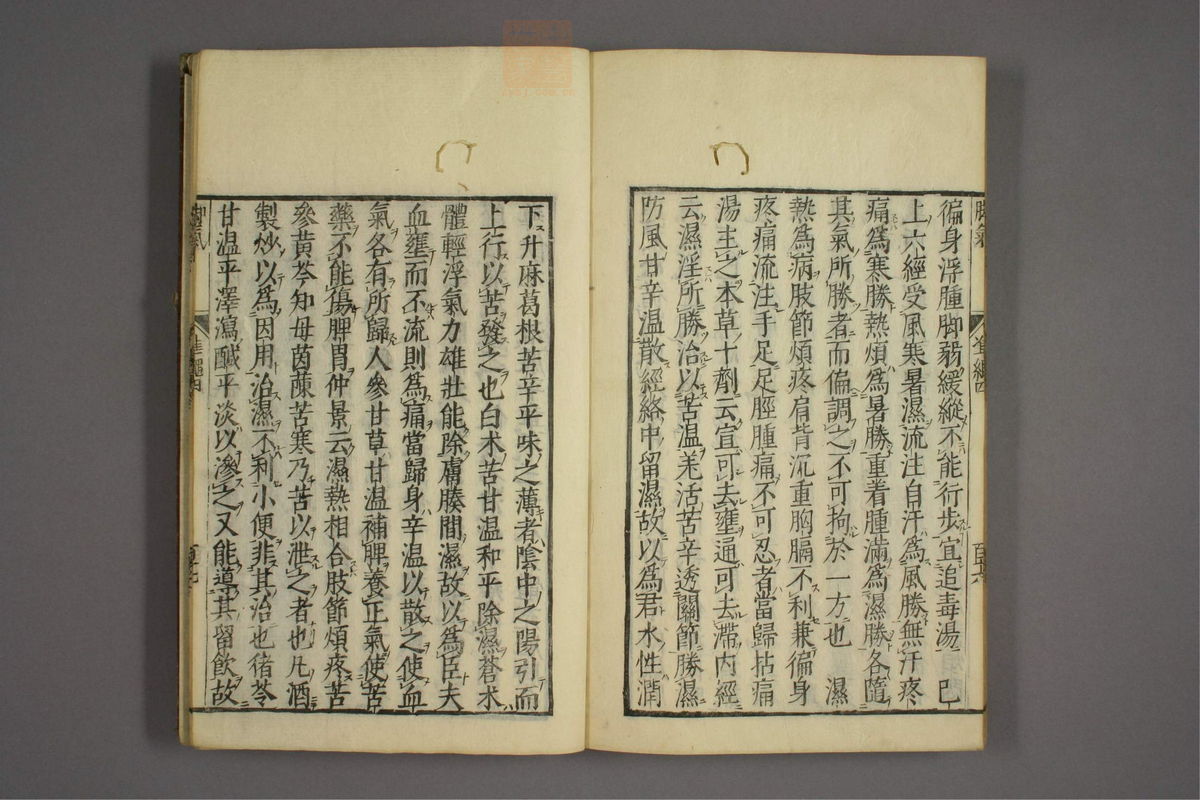 徧身浮腫脚弱緩縱不能行步宜追毒湯 巳
上六經受風寒暑濕流注自汗為風勝無汗疼
痛為寒勝熱煩為暑勝重着腫滿為濕勝各隨
其氣所勝者而偏調之不可拘於一方也 濕
熱為病肢節煩疼肩背沉重胸膈不利兼徧身
疼痛流注手足足脛腫痛不可忍者當歸拈痛
湯主之本草十劑云宣可去壅通可去滯内經
云濕淫所勝治以苦温羌活苦辛透關節勝濕
防風甘辛温散經絡中留濕故以為君水性潤
脚氣
準繩四
下升麻葛根苦辛平味之薄者陰中之陽引而
上行以苦發之也白术苦甘温和平除濕蒼术
體輕浮氣力雄壯能除膚腠間濕故以為臣夫
血壅而不流則為痛當歸身辛温以散之使血
氣各有所歸人參甘草甘温補脾養正氣使苦
藥不能傷脾胃仲景云濕熱相合肢節煩疼苦
參黄芩知母茵蔯苦寒乃苦以泄之者也凡酒
製炒以為因用治濕不利小便非其治也猪苓
甘温平澤瀉鹹平淡以滲之又能導其留飲故